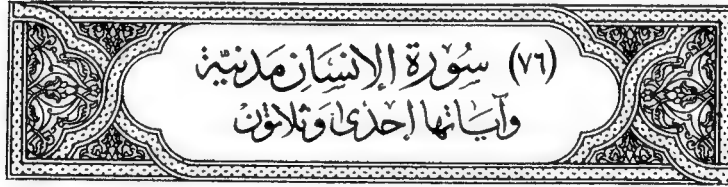 (٧٦) سُوْرَةِ الإِنْسَانِ مَدَنِيَّة
وَآيَاتِهَا إِحْدَىٰ وَثَلَاثُوْنَ